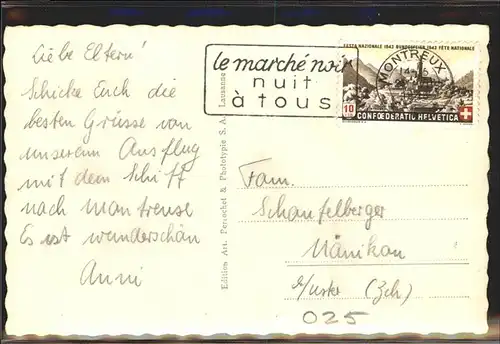 Liebe Eltern!
Schicke Euch die
besten Grüsse von
unserem Ausflug
mit dem Schiff
nach Montreuse
Es ist wunderschön
Anni
le marché noir
nuit
à tous
FESTA NAZIONALE 1942 BUNDESFEIER 1942 FÊTE NATIONALE
MONTREUX
10
CONFOEDERATIO HELVETICA
Edition Art. Perrochet & Phototypie S. A. Lausanne
Fam.
Schaufelberger
Nänikon
b/Uster (Zch)
025